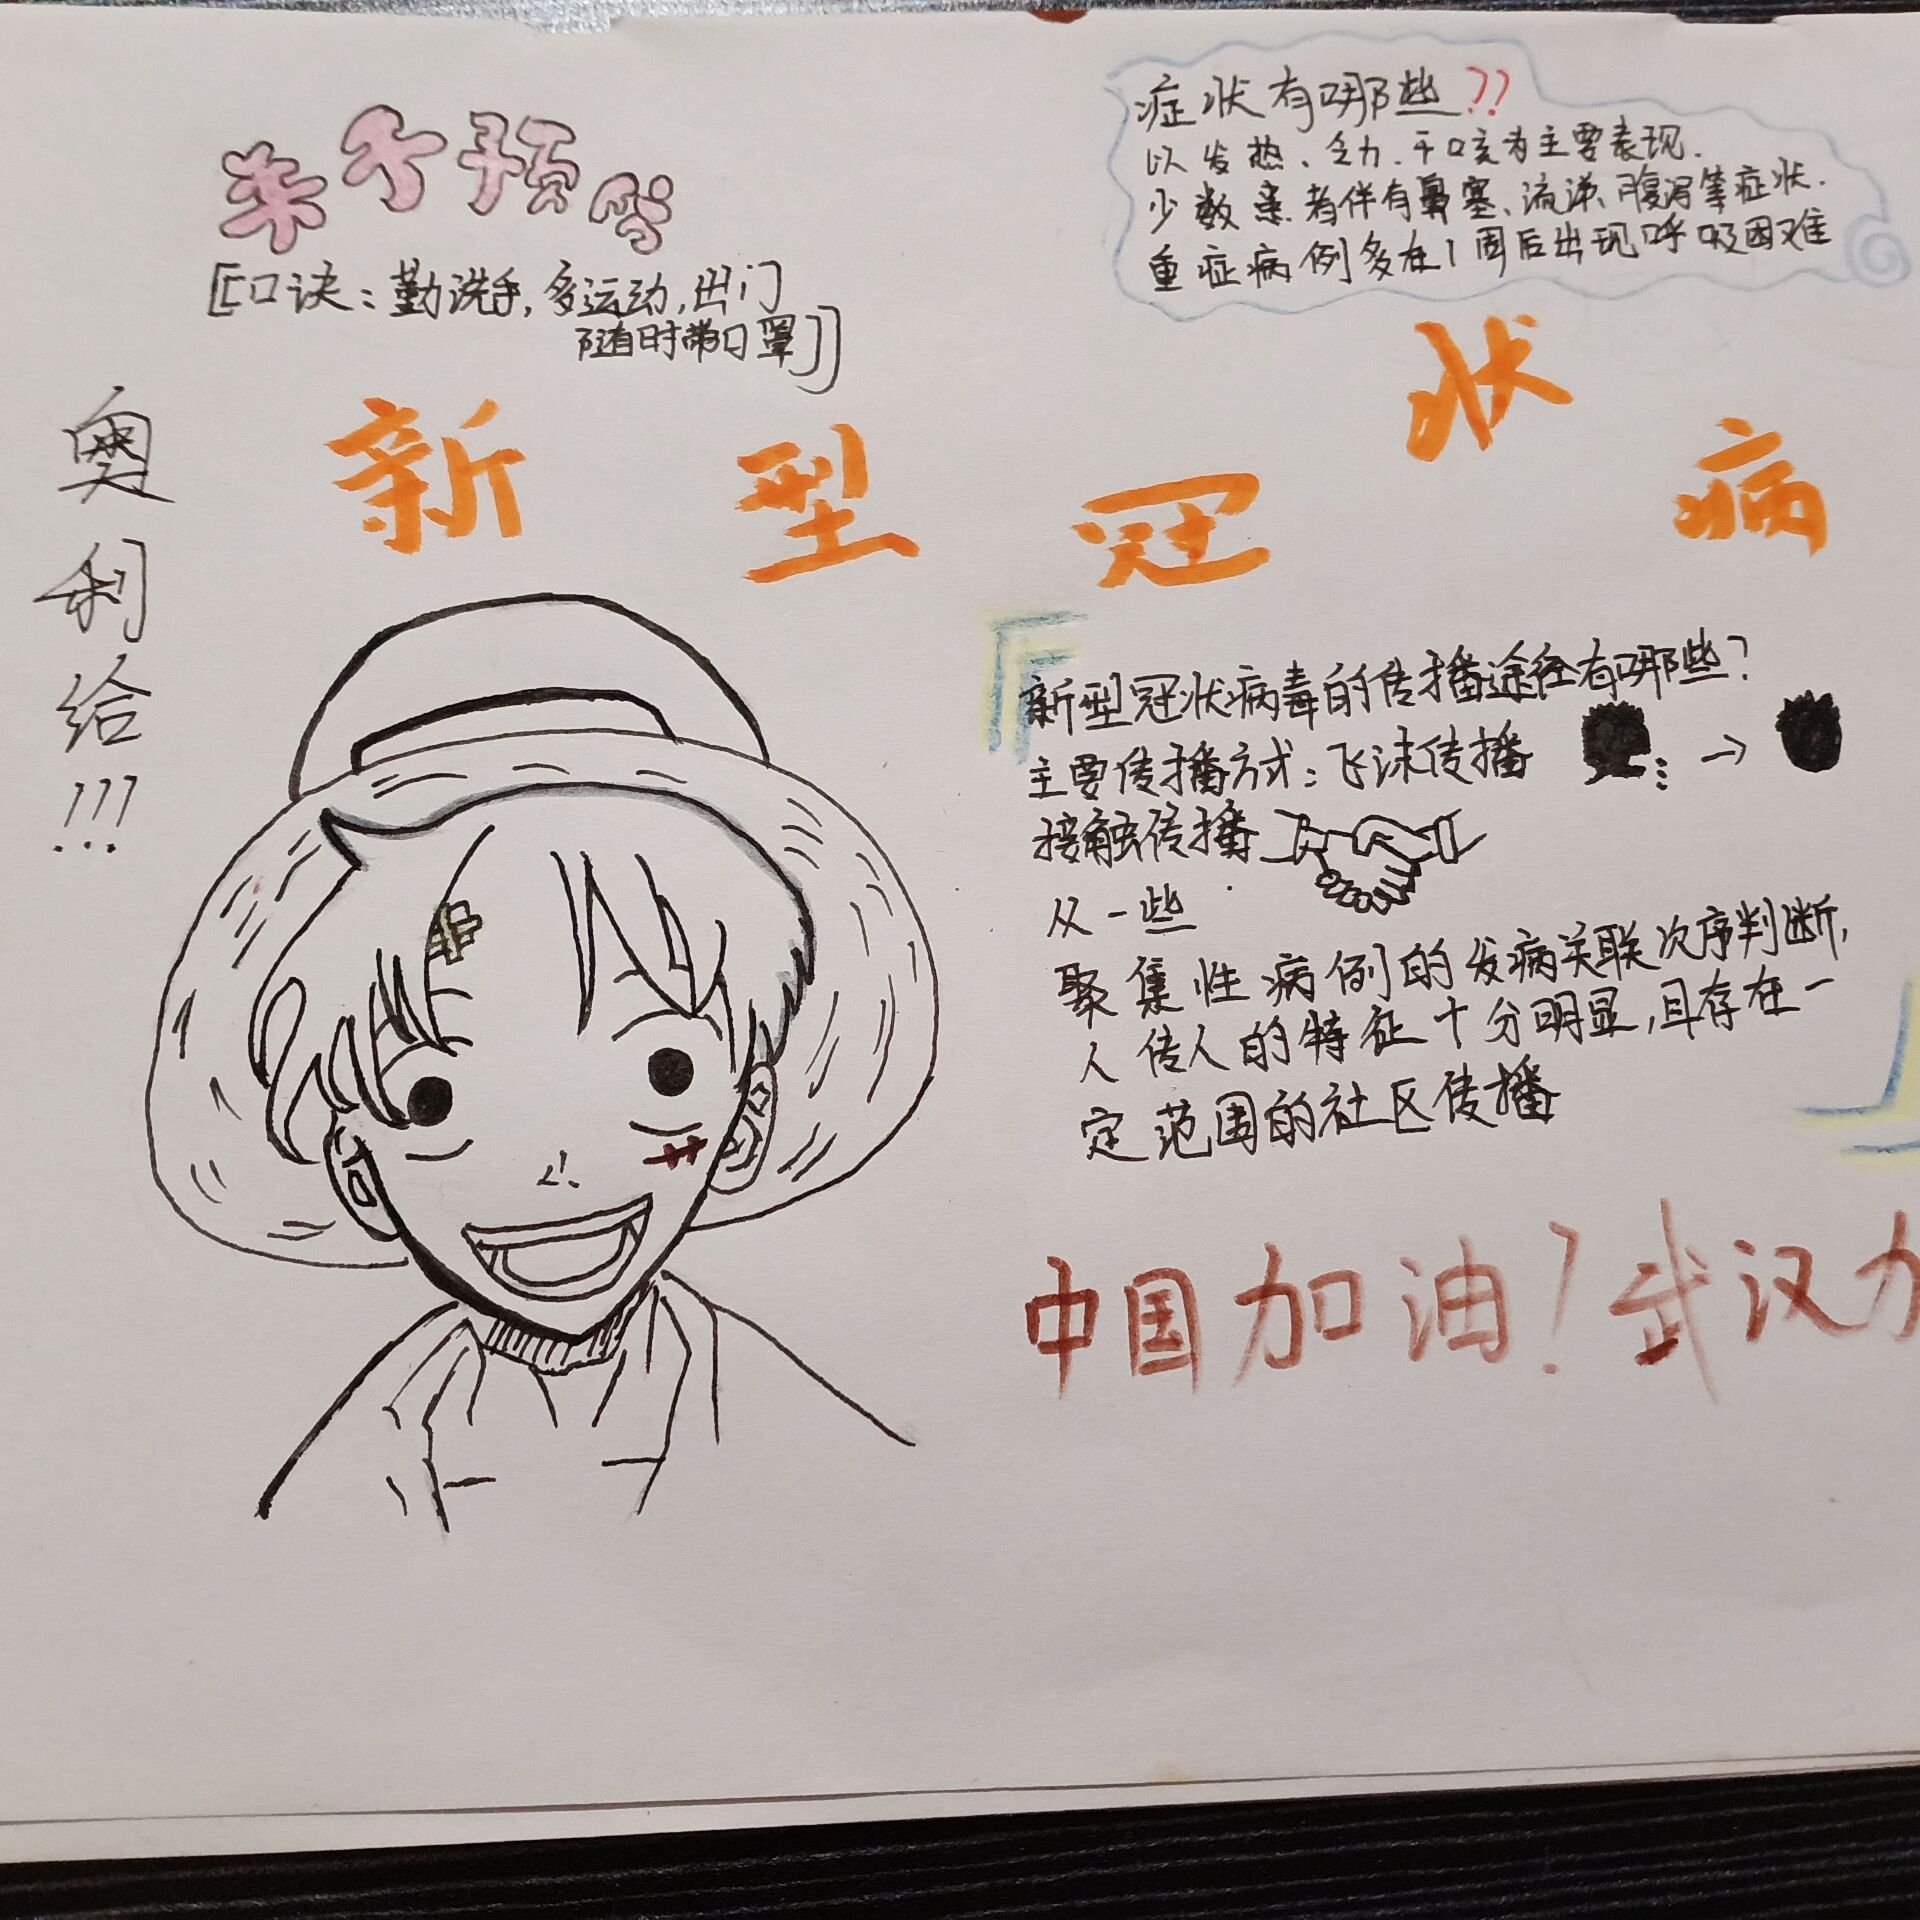 [[口诀：勤洗手，多运动，出门
随时带口罩]]
症状有哪些??
以发热、乏力、干咳为主要表现.
少数患者伴有鼻塞、流涕、腹泻等症状.
重症病例多在1周后出现呼吸困难
奥利给!!!
新型冠状病
新型冠状病毒的传播途径有哪些?
主要传播方式：飞沫传播 →
接触传播
从一些
聚集性病例的发病关联次序判断,
人传人的特征十分明显,且存在一
定范围的社区传播
中国加油!武汉